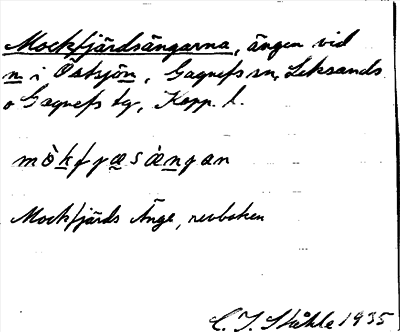 Mockfjärdsängarna, ängen vid
n i Östsjön, Gagnefs sn, Leksands
o Gagnefs tg, Kopp. l.
mòkfyæsàngan
Mockfjärds Änge, revboken
C. I. Ståhle 1935